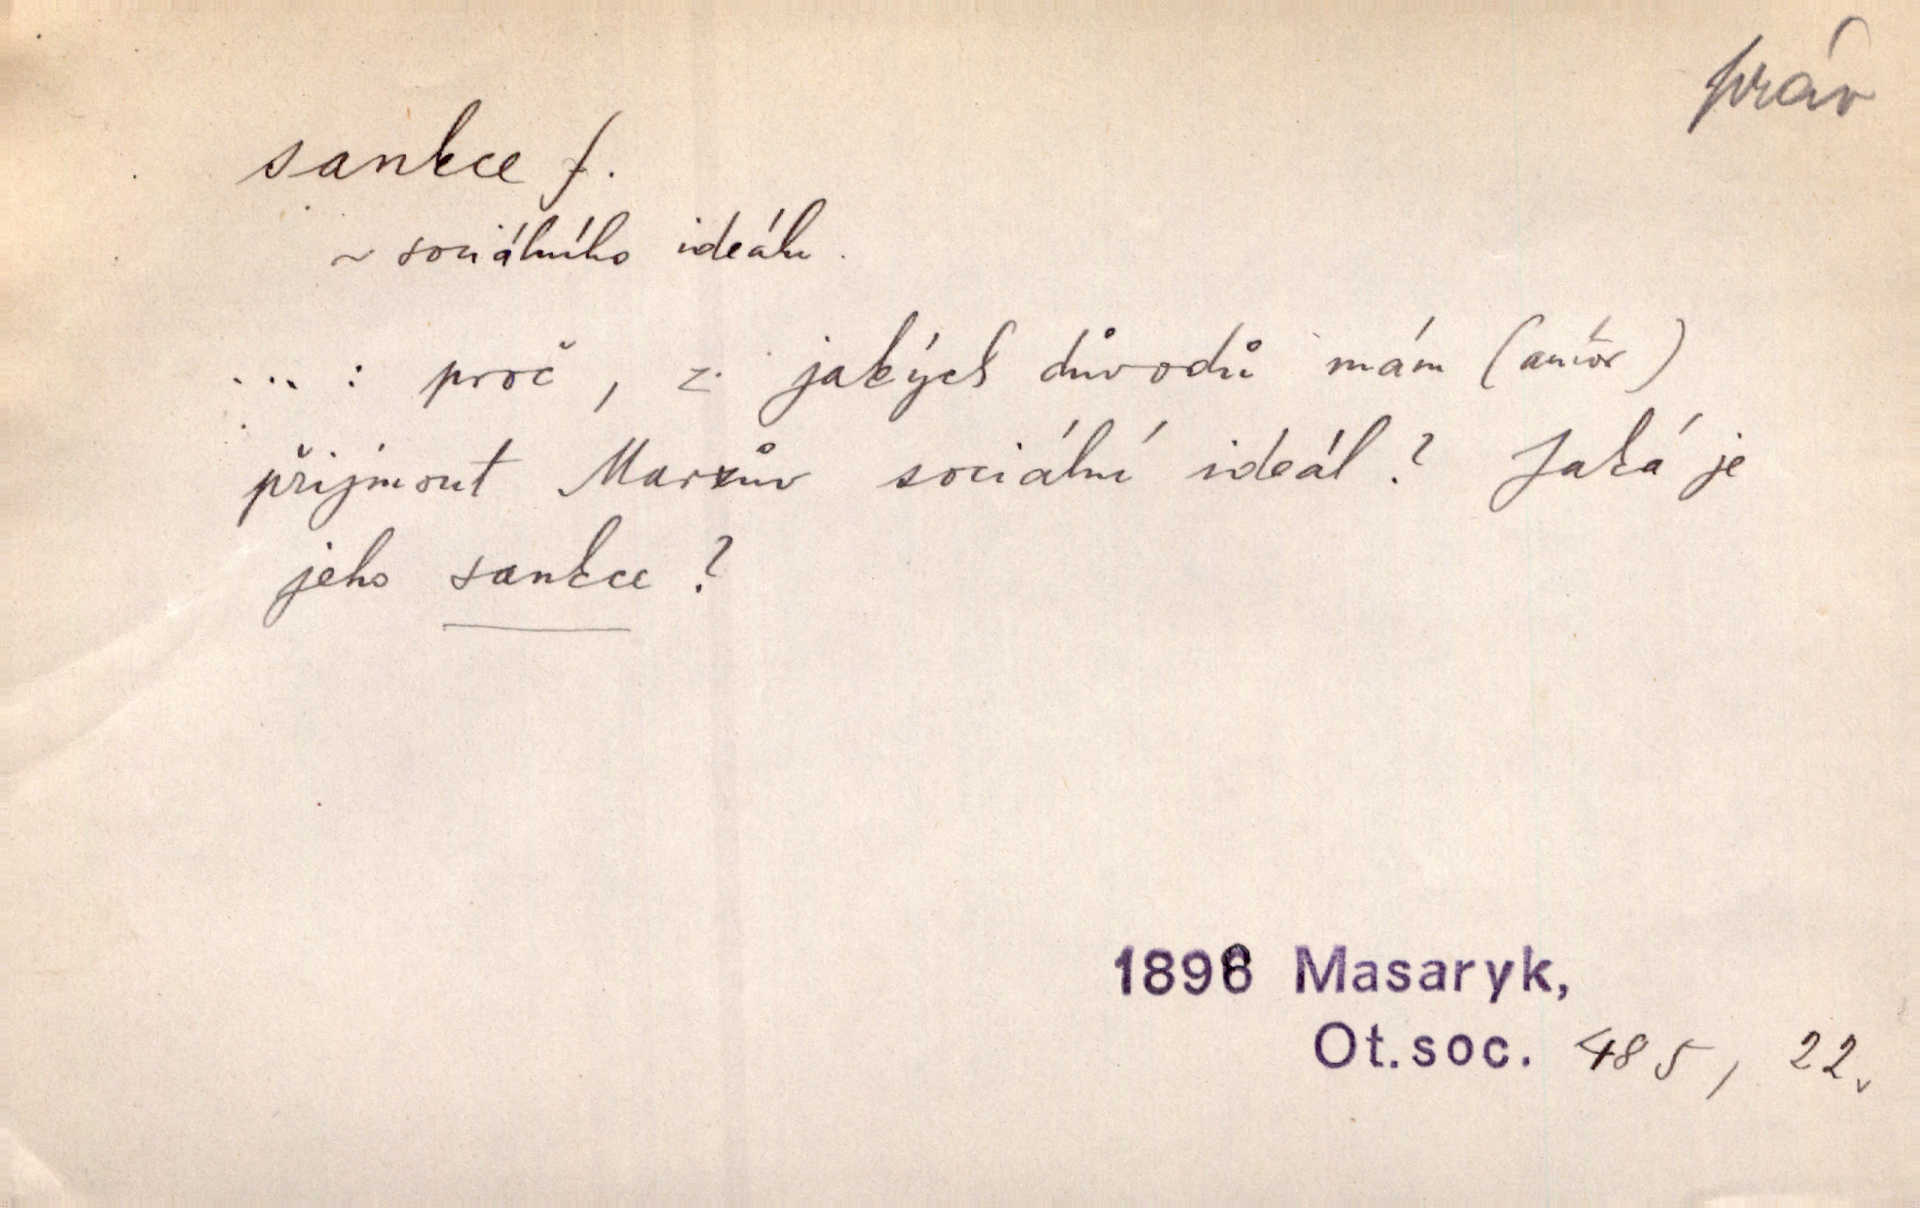 práv
sankce f.
~ sociálního ideálu.
... : proč, z jakých důvodů mám (autor)
přijmout Marxův sociální ideál? Jaká je
jeho sankce?
1898 Masaryk,
Ot.soc. 485, 22.